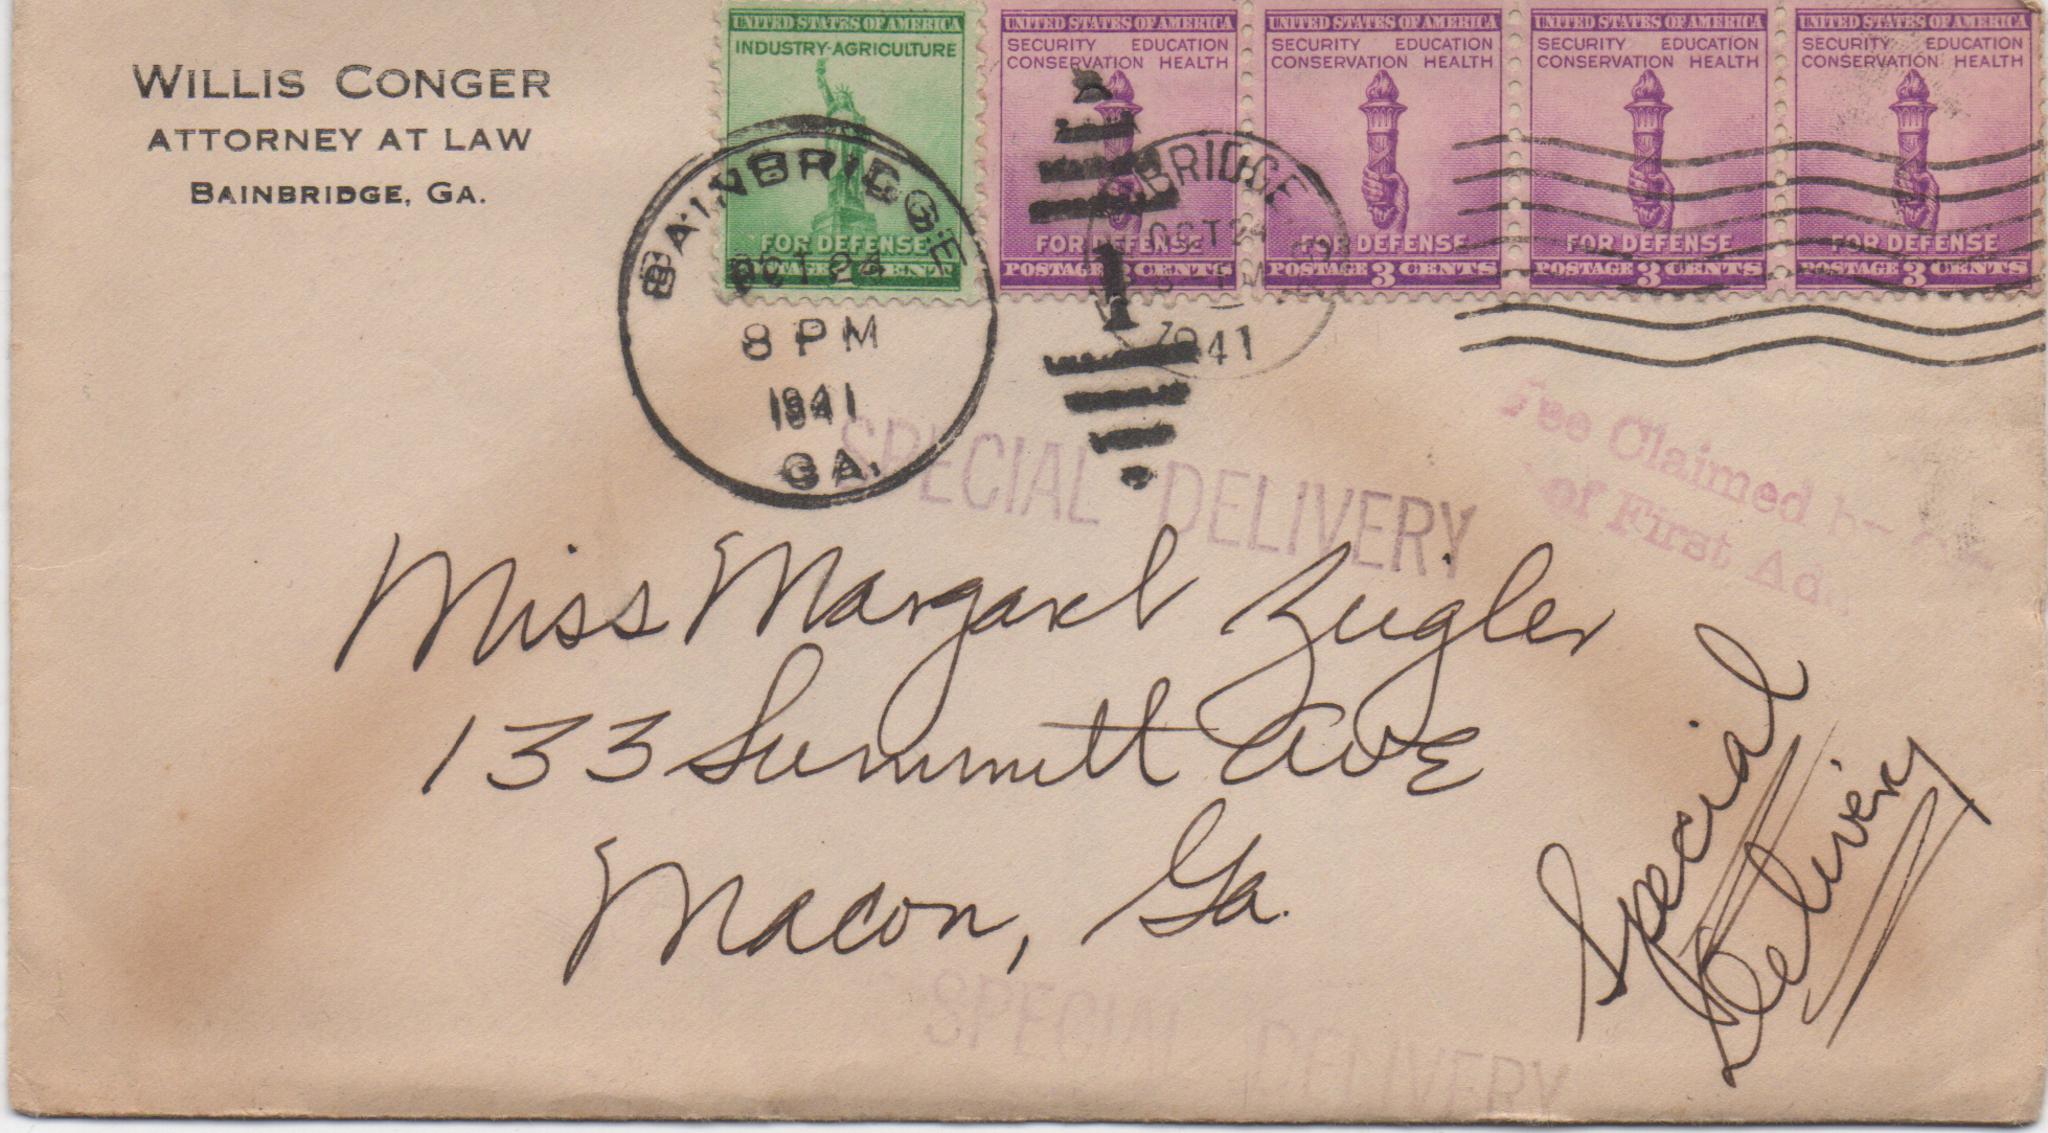 WILLIS CONGER
ATTORNEY AT LAW
BAINBRIDGE, GA.
UNITED STATES OF AMERICA
INDUSTRY-AGRICULTURE
FOR DEFENSE
UNITED STATES OF AMERICA
SECURITY EDUCATION
CONSERVATION HEALTH
FOR DEFENSE
POSTAGE 3 CENTS
UNITED STATES OF AMERICA
SECURITY EDUCATION
CONSERVATION HEALTH
FOR DEFENSE
POSTAGE 3 CENTS
UNITED STATES OF AMERICA
SECURITY EDUCATION
CONSERVATION HEALTH
FOR DEFENSE
POSTAGE 3 CENTS
UNITED STATES OF AMERICA
SECURITY EDUCATION
CONSERVATION HEALTH
FOR DEFENSE
POSTAGE 3 CENTS
BAINBRIDGE
OCT 24
8 PM
1941
GA.
1
OCT 24
1941
SPECIAL DELIVERY
Fee Claimed
of First
Miss Margaret Zeigler
133 Summitt Ave
Macon, Ga.
Special
Delivery
SPECIAL DELIVERY